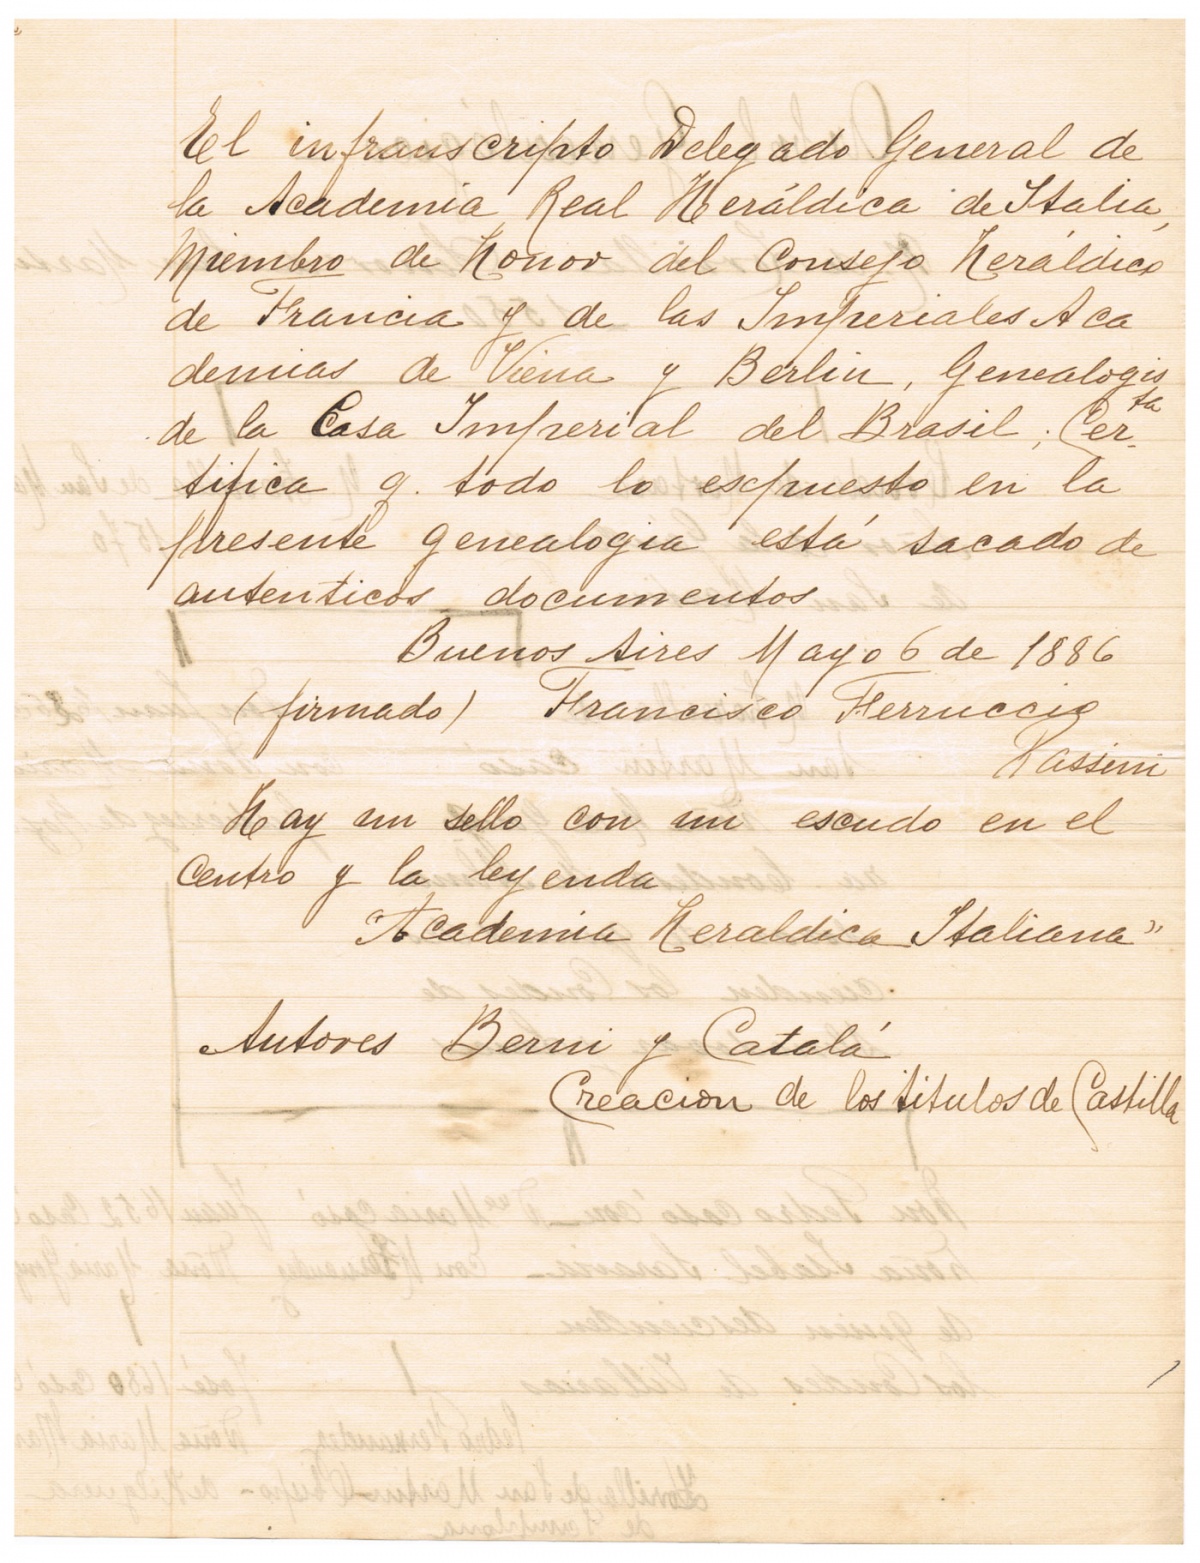 El infranscripto Delegado General de
la Academia Real Heráldica de Italia,
Miembro de Honor del Consejo Heráldico
de Francia y de las Imperiales Aca
demias de Viena y Berlin, Genealogis
ta
de la Casa Imperial del Brasil; Cer-
tifica q. todo lo espuesto en la
presente genealogia está sacado de
autenticos documentos
Buenos Aires Mayo 6 de 1886
(firmado) Francisco Ferruccio
Passini
Hay un sello con un escudo en el
centro y la leyenda
"Academia Heraldica Italiana"
Autores Berni y Catalá
Creacion de los titulos de Castilla